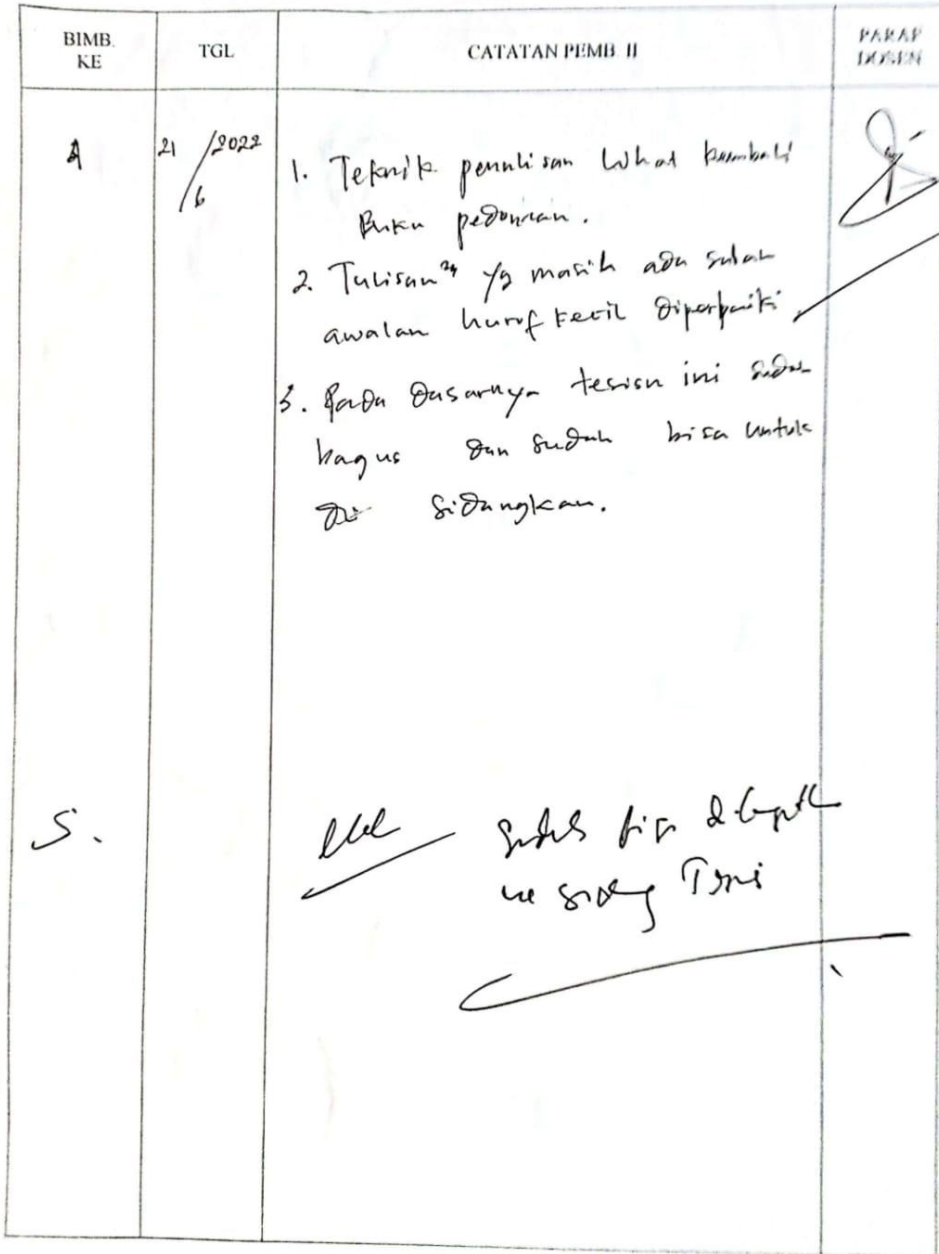 BIMB. KE
TGL
CATATAN PEMB. II
PARAF DOSEN
4
21/6/2022
1. Teknik penulisan lihat kembali
Buku pedoman.
2. Tulisan" yg masih ada salah
awalan huruf kecil diperbaiki
3. Pada dasarnya tesisn ini sudah
bagus dan sudah bisa untuk
di sidangkan.
5.
ke sidang Tesis